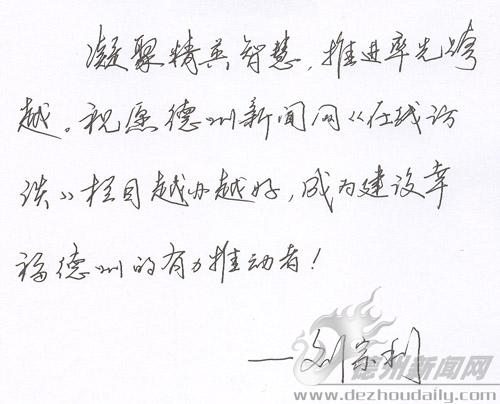 凝聚精英智慧，推进率先跨
越。祝愿德州新闻网《在线访
谈》栏目越办越好，成为建设幸
福德州的有力推动者！
——刘宗利
德州新闻网
www.dezhoudaily.com